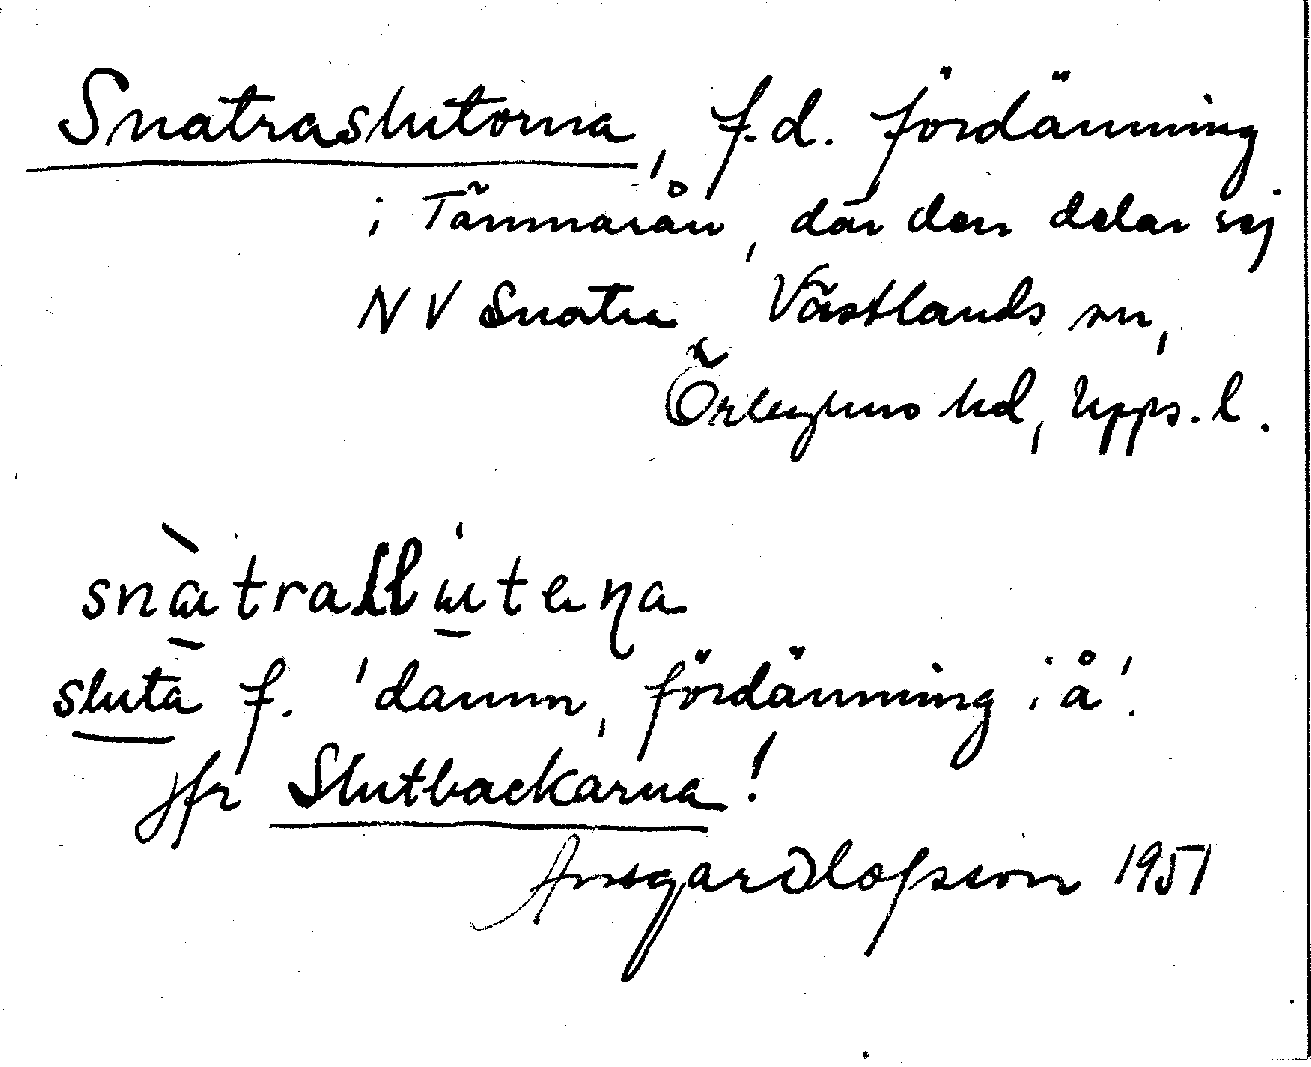 Snatraslutorna, f.d. fördämning
i Tämnarån, där den delar sej
NV Snatra Västlands sn,
Örbyhus hd, Upps. l.
snàtrallutena
sluta f. 'damm, fördämning i å'.
jfr Slutbackarna!
Ansgar Olofsson 1951